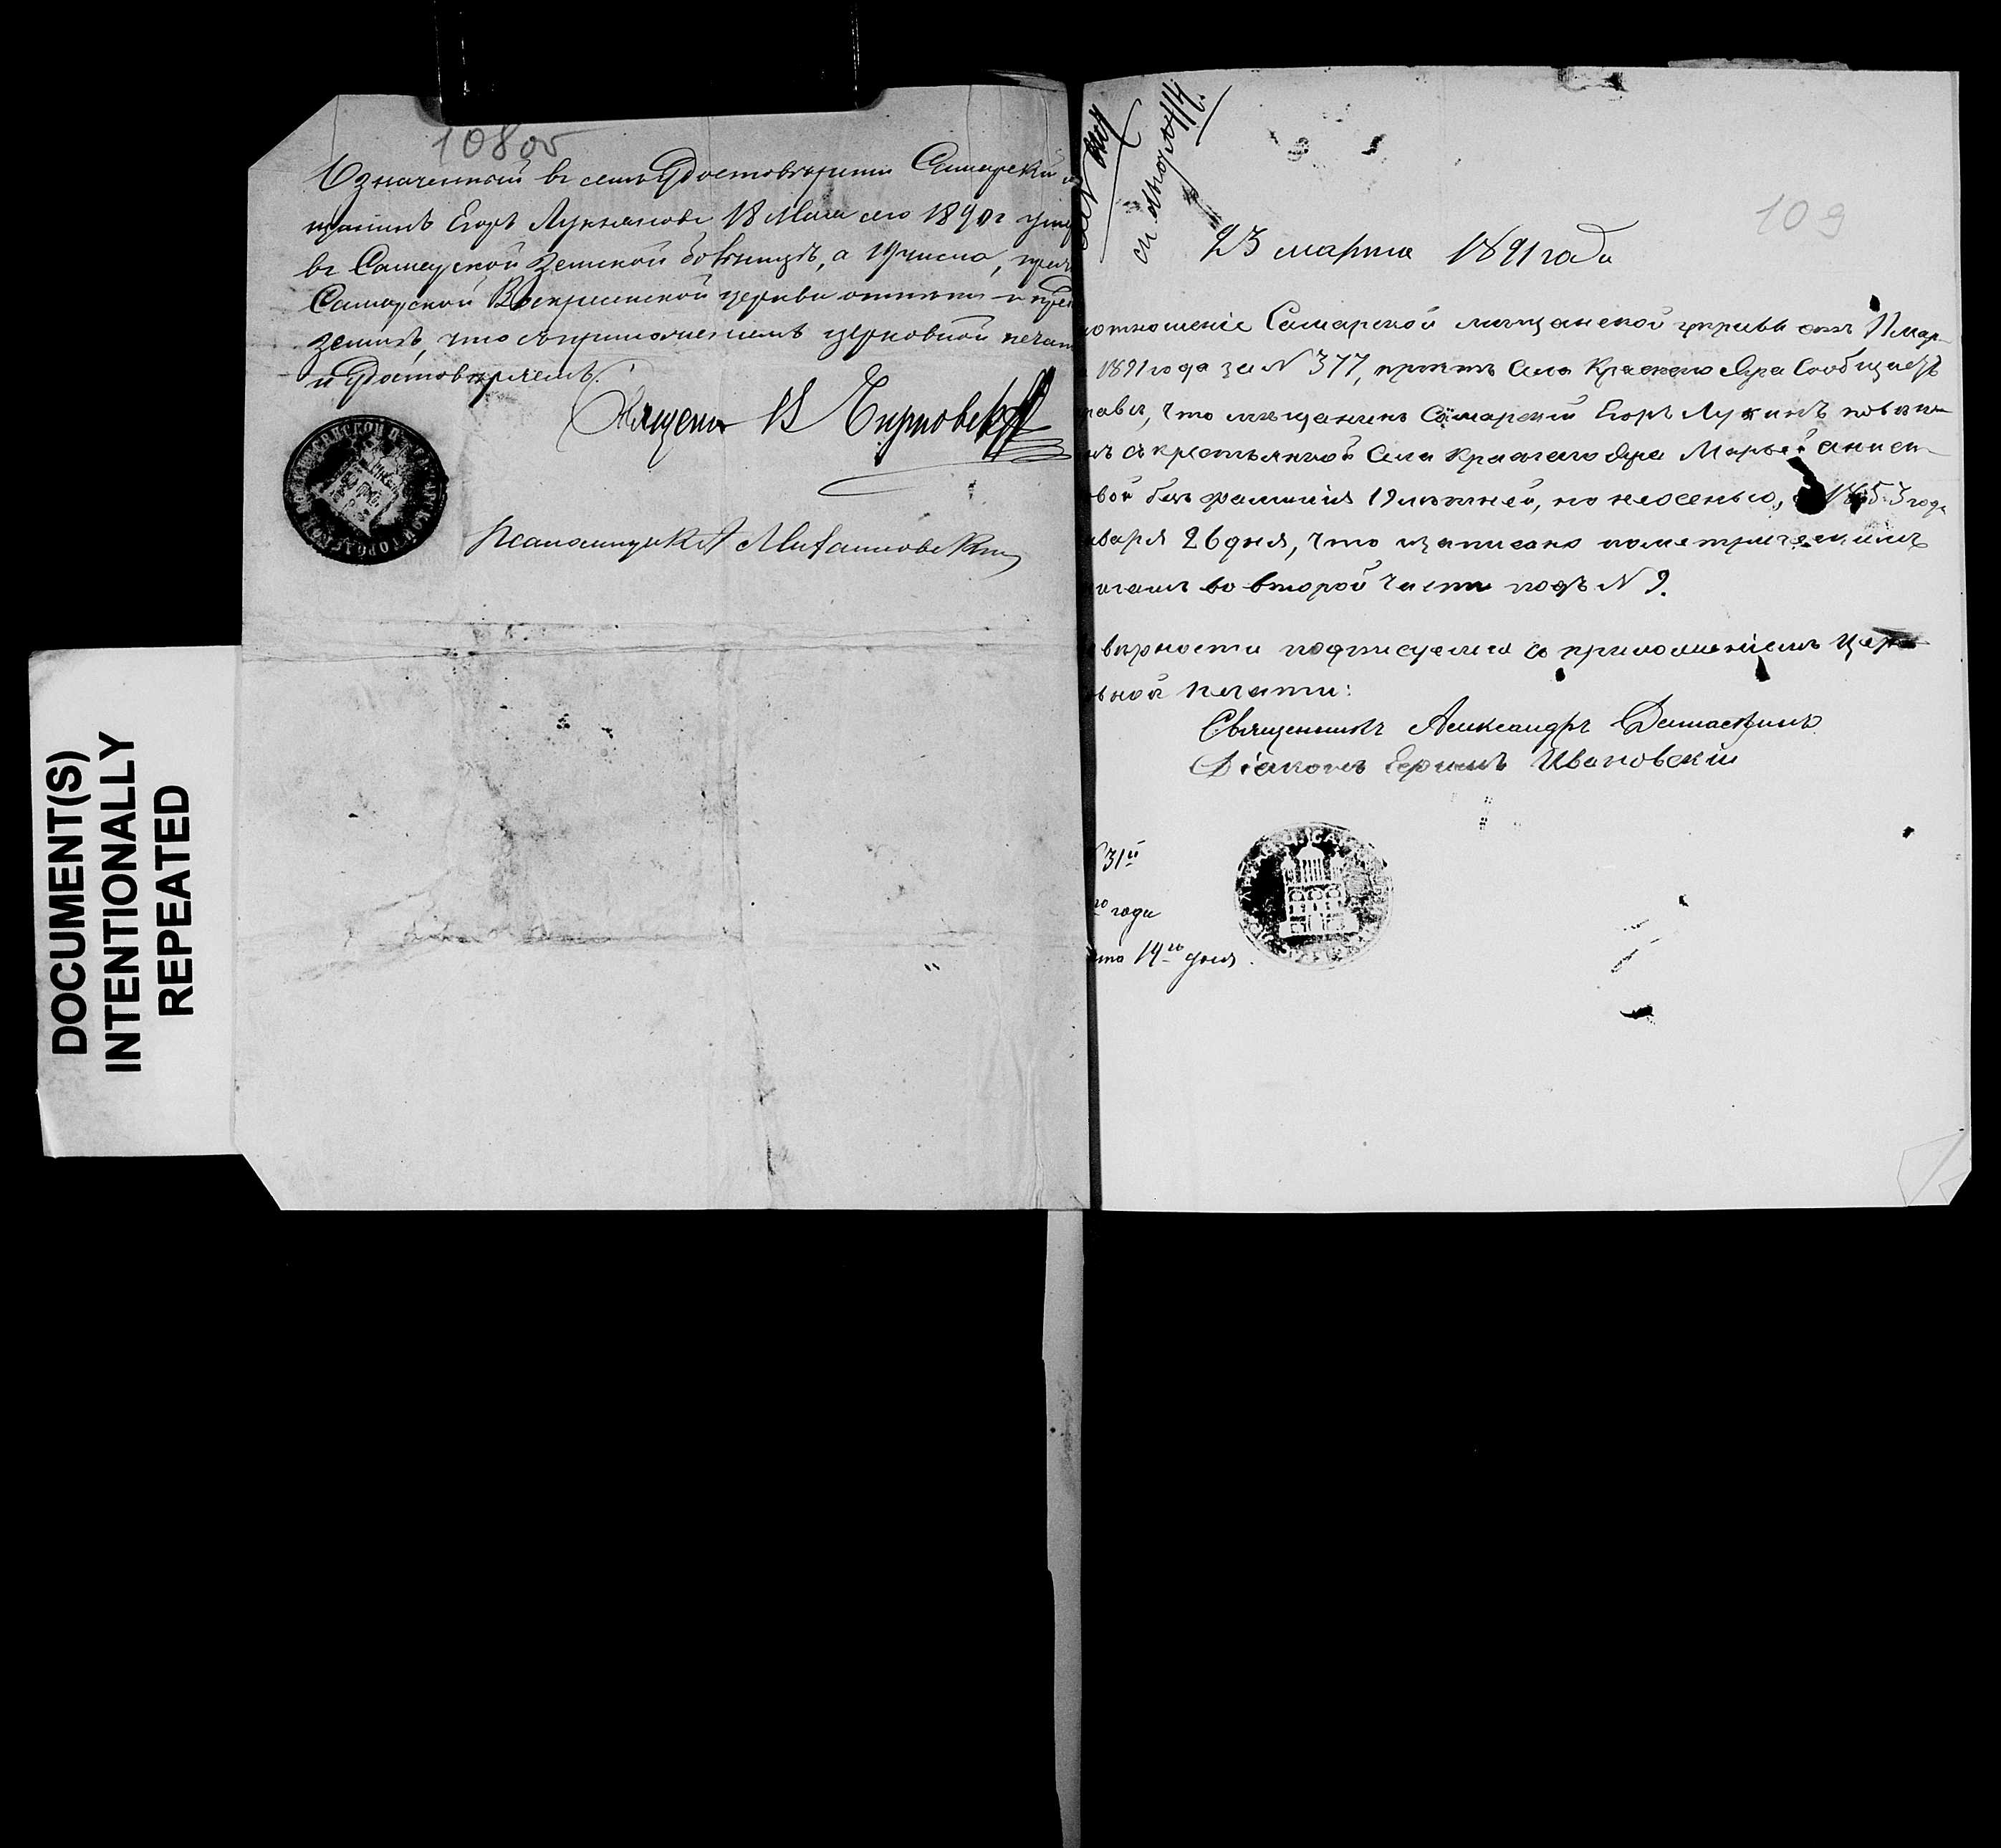 108 об
Означенный въ семъ удостоверенiи Самарскiй
щанинъ Егоръ Лукьяновъ 18 Мая сего 1890 г
въ Самарской Земской больницѣ, а 19 числа,
Самарской Воскресенской церкви отпетъ и пре
землѣ, что съ приложенiемъ церковной печат
и удостовѣряемъ.
Священ В
Псаломщикъ
109
23 марта 1891 года
отношенiе Самарской мѣщанской управы отъ 11 мар-
1891 года за N 377, причтъ Села Краснаго Яра Сообщаетъ
равы, что мѣщанинъ Самарскiй Егоръ Лукинъ повѣн
нъ съ крестьянкой Села Краснаго Яра Марьей
вой безъ фамилiи 19 лѣтней, по неосенью, 1853 года
варя 26 дня, что записано по метрическимъ
нигамъ во второй части подъ N 9.
вѣрности подписуемся съ приложенiемъ Цер
вной печати:
Священникъ Александръ Дамаскинъ
Дiаконъ Ермилъ Ивановскiй
31й
го года
14го дня.
DOCUMENT(S)
INTENTIONALLY
REPEATED